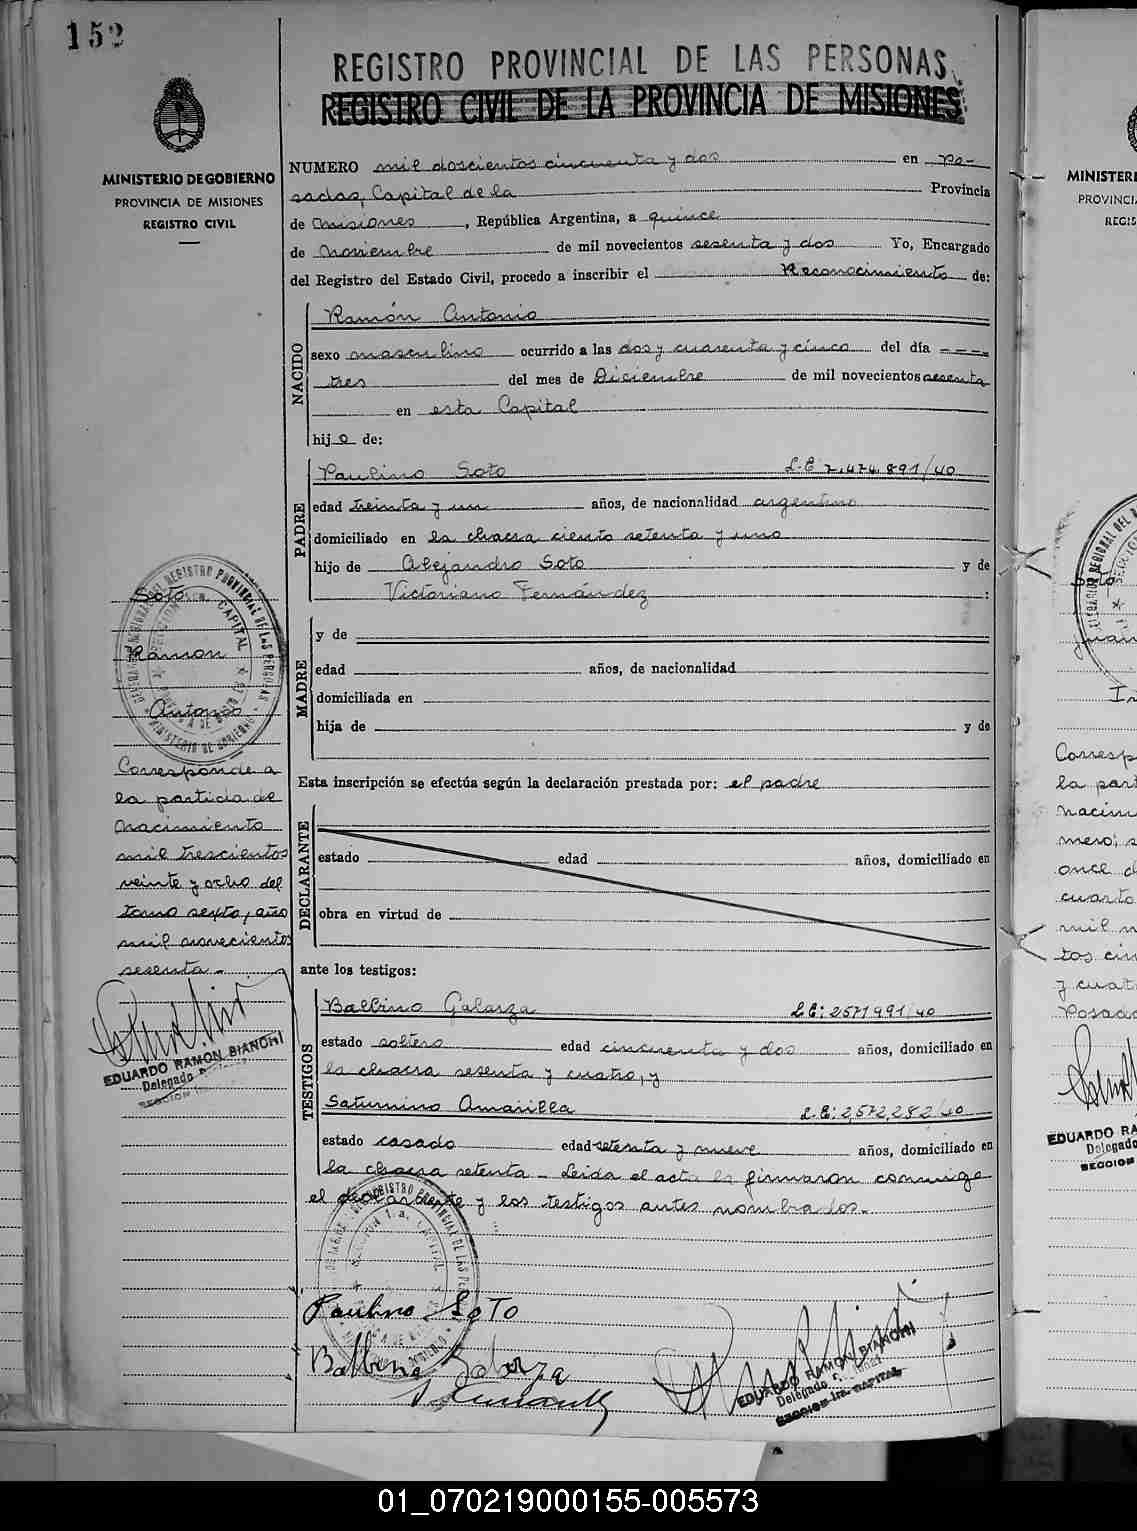 152
REGISTRO PROVINCIAL DE LAS PERSONAS
REGISTRO CIVIL DE LA PROVINCIA DE MISIONES
MINISTERIO DE GOBIERNO
PROVINCIA DE MISIONES
REGISTRO CIVIL
NUMERO mil doscientos cincuenta y dos en Po-
sadas, Capital de la Provincia
de Misiones, República Argentina, a quince
de Noviembre de mil novecientos sesenta y dos Yo, Encargado
del Registro del Estado Civil, procedo a inscribir el Reconocimiento de:
NACIDO
Ramón Antonio
sexo masculino ocurrido a las dos y cuarenta y cinco del día ----
tres del mes de Diciembre de mil novecientos sesenta
en esta Capital
hijo de:
PADRE
Paulino Soto L.E 7.474.891/40
edad treinta y un años, de nacionalidad argentino
domiciliado en la chacra ciento setenta y uno
hijo de Alejandro Soto y de
Victoriano Fernández :
MADRE
y de
edad años, de nacionalidad
domiciliada en
hija de y de
Esta inscripción se efectúa según la declaración prestada por: el padre
DECLARANTE
estado edad años, domiciliado en
obra en virtud de
ante los testigos:
TESTIGOS
Balbino Galarza L.E: 2571991/40
estado soltero edad cincuenta y dos años, domiciliado en
la chacra sesenta y cuatro, y
Saturnino Amarilla L.E: 2,572,282/40
estado casado edad setenta y nueve años, domiciliado en
la chacra setenta - Leída el acta la firmaron conmigo
el declarante y los testigos antes nombrados.-
Paulino SoTo
Balbino Galarza
EDUARDO RAMON BIANCHI
Delegado
SECCION 1ra. CAPITAL
Soto
Ramon
Antonio
Corresponde a
la partida de
nacimiento
mil trescientos
veinte y ocho del
tomo sexto, año
mil novecientos
sesenta -
EDUARDO RAMON BIANCHI
Delegado
SECCION
MINISTERI
PROVINCI
REGIS
Corresp
la part
nacim
once d
cuarto
mil n
tos cin
y cuat
Posada
EDUARDO RA
Delegado
SECCION
01_070219000155-005573